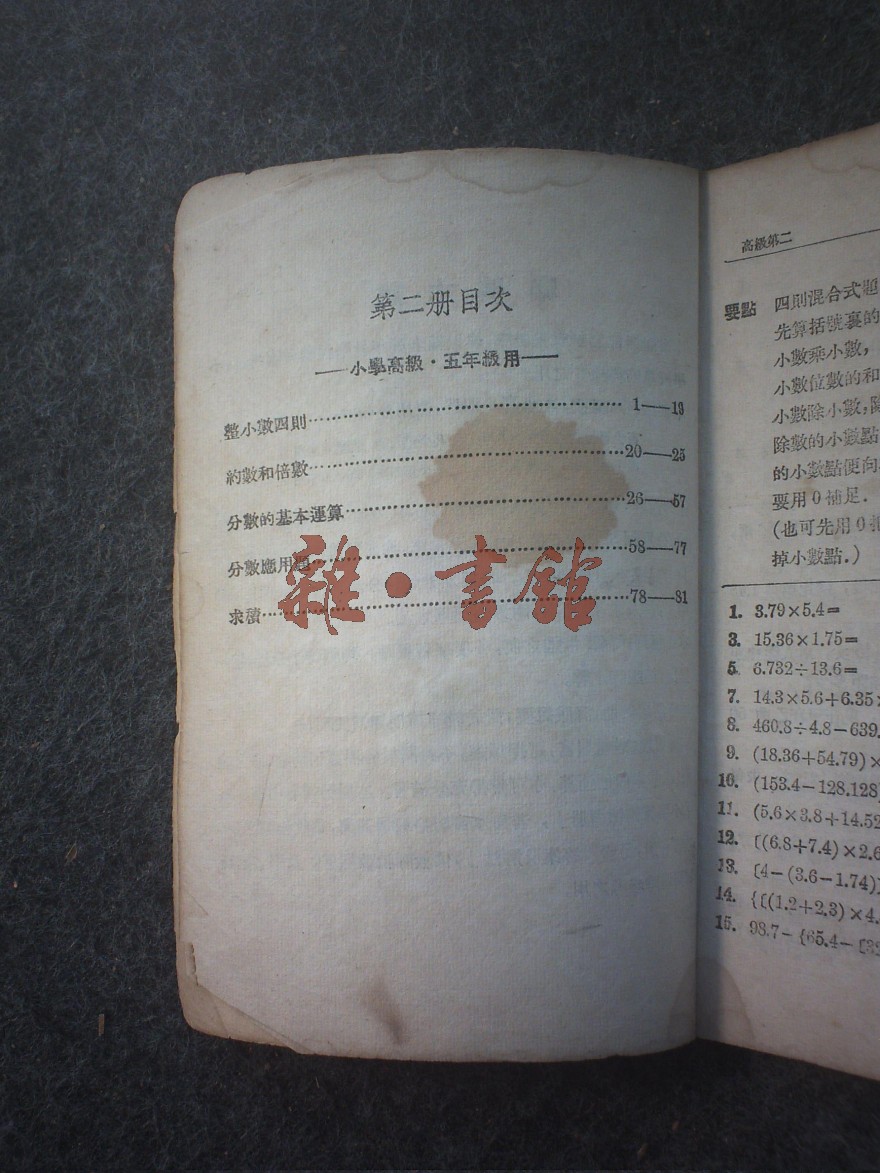 第二册目次
——小學高級·五年級用——
整小數四則……………………1——19
約數和倍數……………………20——25
分數的基本運算……………………26——57
分數應用題……………………58——77
求積……………………78——81
雜·書舘
高級第二
要點 四則混合式題
先算括號裏的
小數乘小數，
小數位數的和
小數除小數，除
除數的小數點
的小數點便向
要用0補足．
(也可先用0把
掉小數點．)
1. 3.79×5.4=
3. 15.36×1.75=
5. 6.732÷13.6=
7. 14.3×5.6+6.35×
8. 460.8÷4.8−639.
9. (18.36+54.79)×
10. (153.4−128.128)
11. (5.6×3.8+14.52
12. 〔(6.8+7.4)×2.6
13. 〔4−(3.6−1.74)〕
14. {〔(1.2+2.3)×4.
15. 98.7−{65.4−〔32